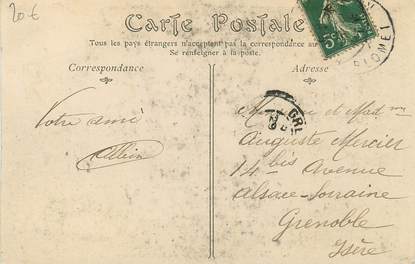 20€
Carte Postale
Tous les pays étrangers n'acceptent pas la correspondance au
Se renseigner à la poste.
Correspondance
Adresse
5c
GRE
Votre ami
Albin
Monsieur et Madme
Auguste Mercier
14 bis Avenue
Alsace-Lorraine
Grenoble
Isère